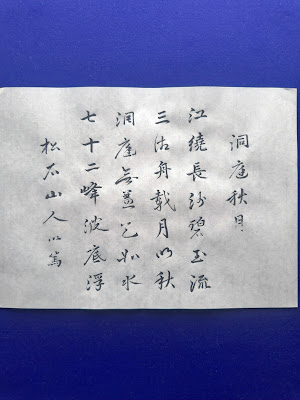 洞庭秋月
江繞長沙碧玉流
三舟載月明秋
洞庭無蓋如水
七十二峰波底浮
松石山人以篤